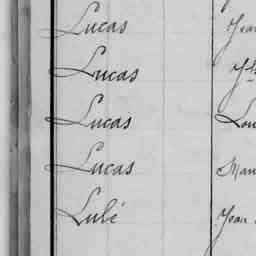 Lucas Jean
Lucas
Lucas Lou
Lucas
Lubé Jean